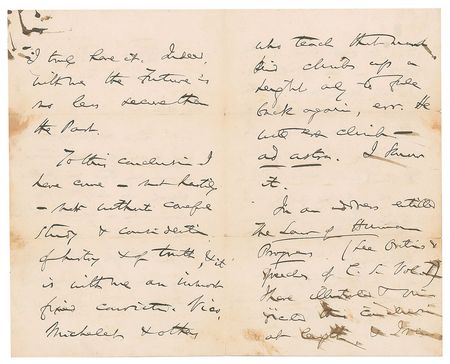 I truly have it. Indeed,
with me the Future is
no less secure than
the Past.
To this conclusion I
have come – not hastily
– not without careful
study & consideration
of history & of truth, & it
is with me an
fixed conviction. Vico,
Michelet & others
who teach that man-
kind climbs up a
height only to fall
back again, err. He
will climb –
ad astra. I know
it.
In an address entitled
The Law of Human
Progress (see Orations &
speeches of C. S. Vol.
I have illustrated &
this conclusion
at length.